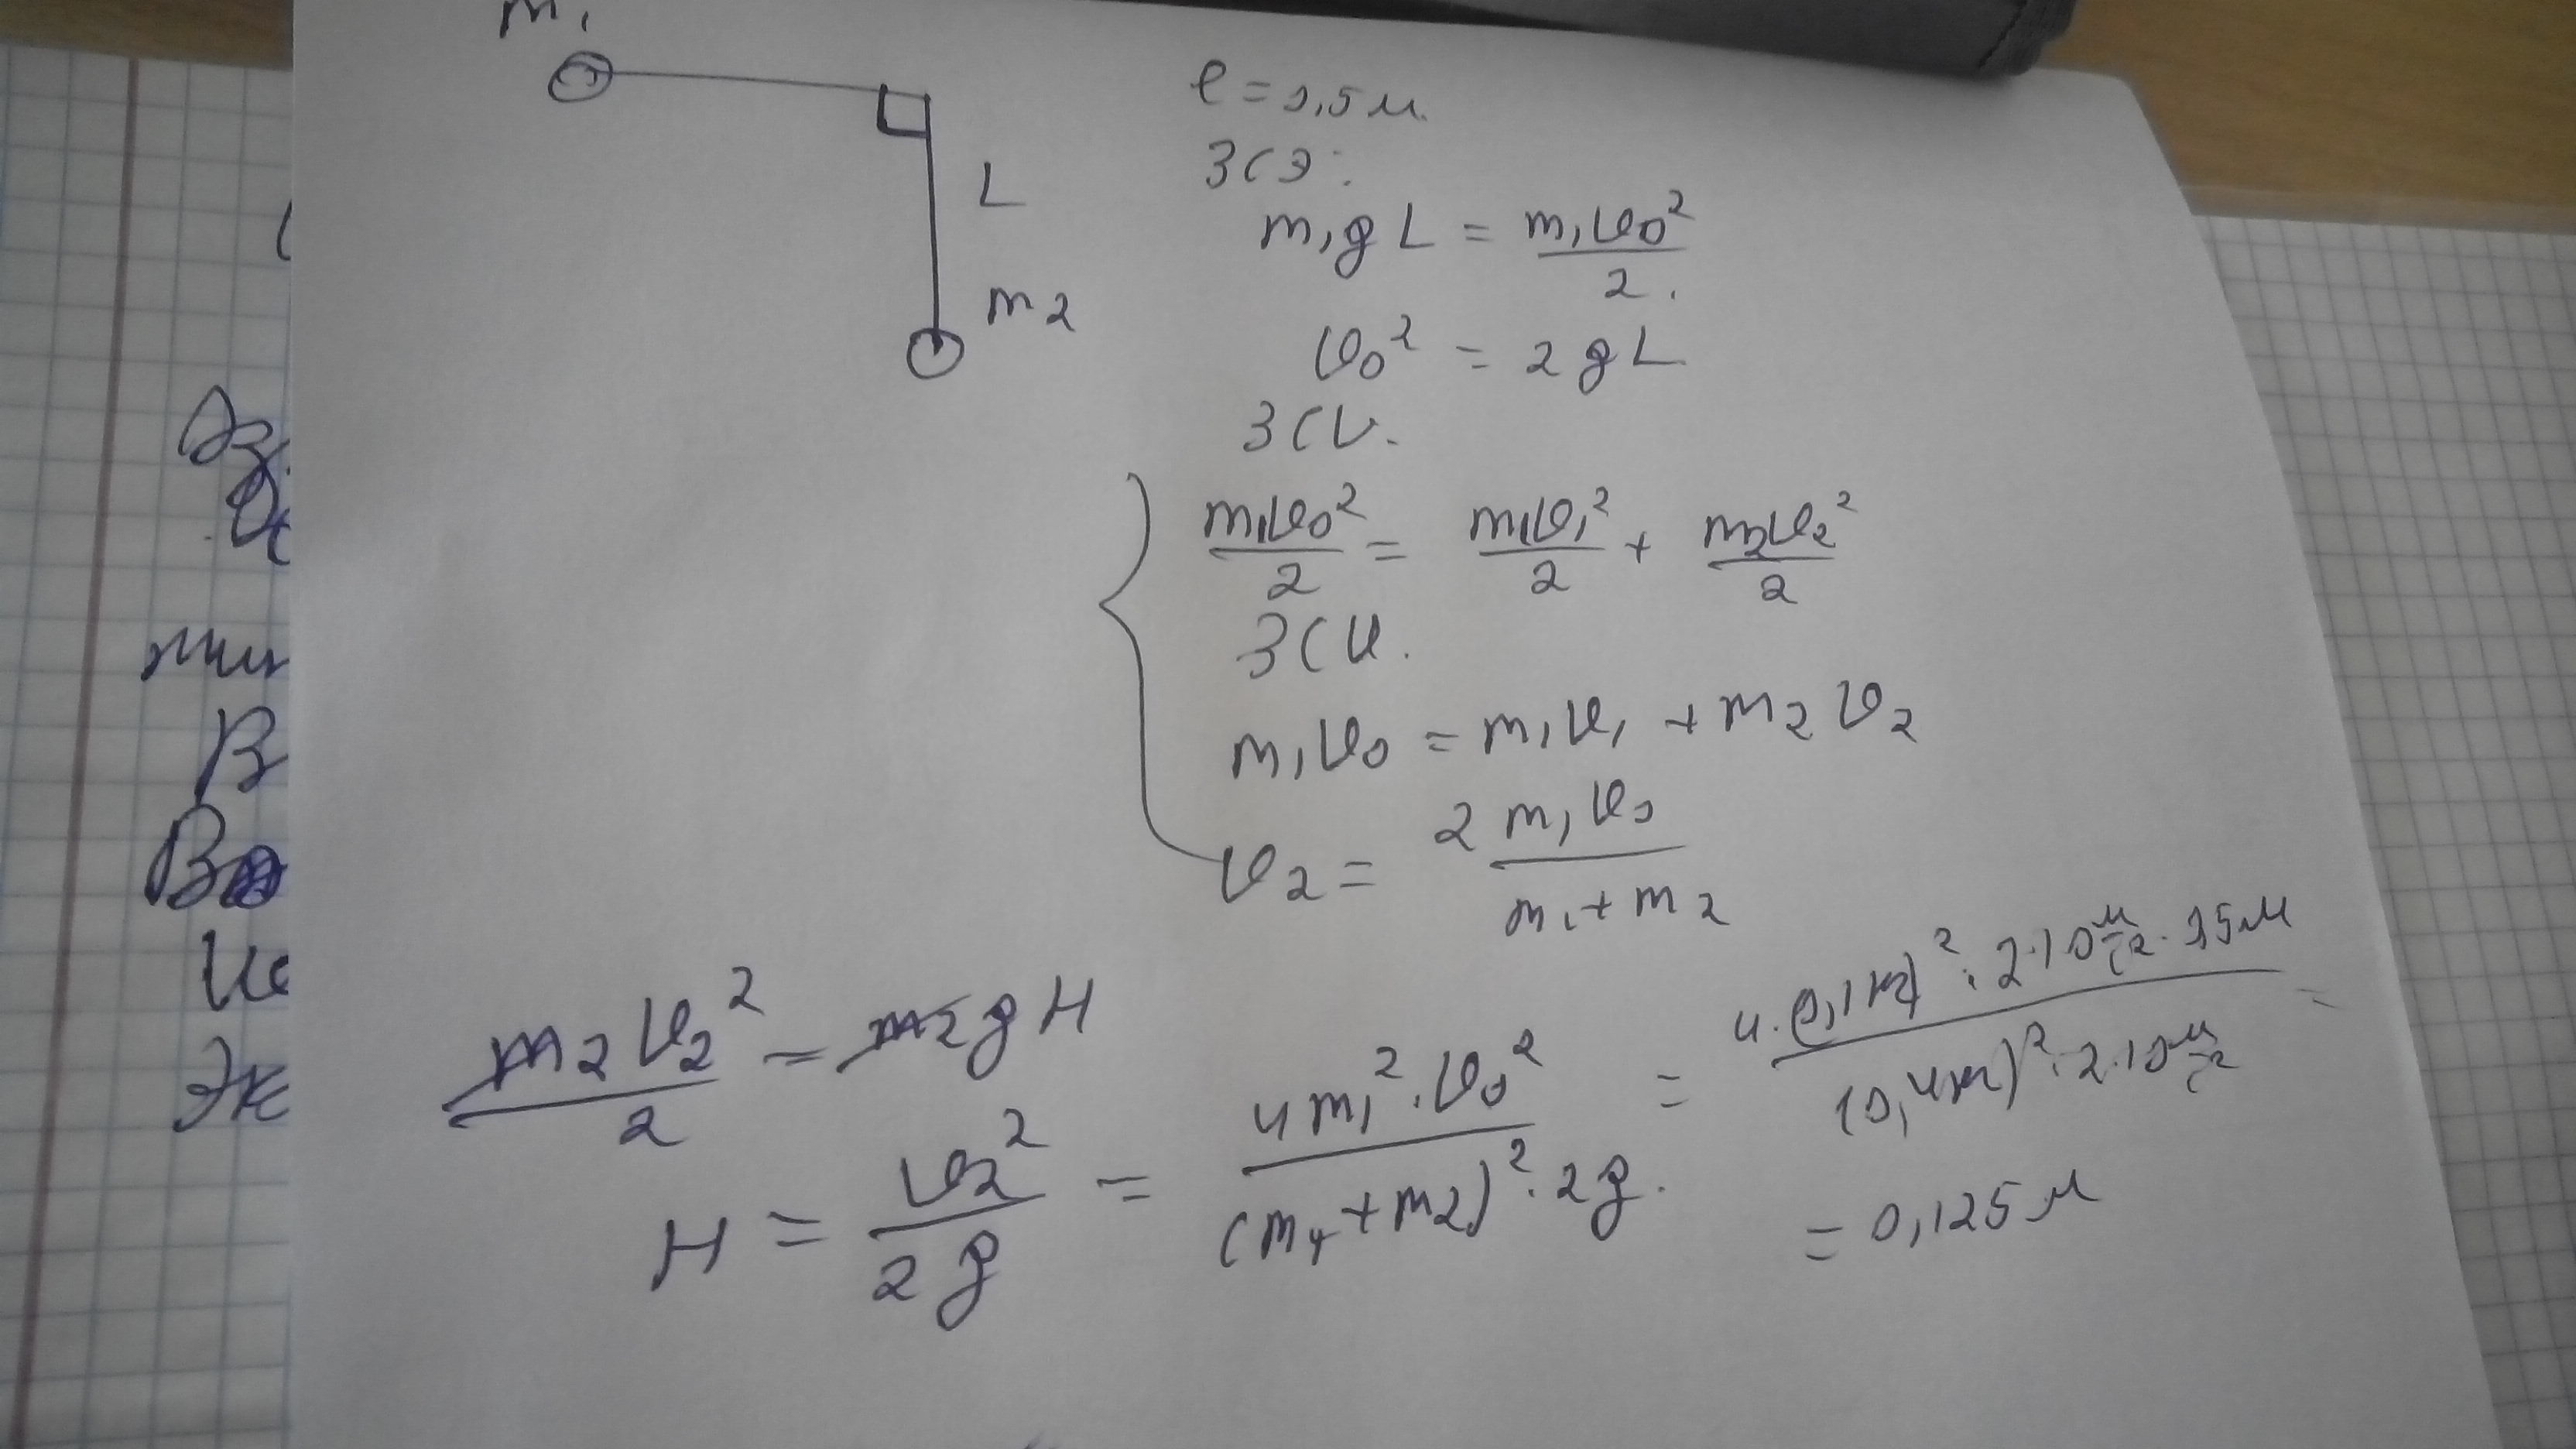 m₁
L
m₂
l = 0,5 м.
ЗСЭ:
m₁gL = m₁υ₀²/2.
υ₀² = 2gL
ЗС
m₁υ₀²/2 = m₁υ₁²/2 + m₂υ₂²/2
ЗСИ.
m₁υ₀ = m₁υ₁ + m₂υ₂
υ₂ = 2m₁υ₀/(m₁+m₂)
m₂υ₂²/2 = m₂gH
H = υ₂²/2g = 4m₁²·υ₀²/((m₁+m₂)²·2g). = 4·(0,1кг)²·2·10м/с²·0,5м/((0,4кг)²·2·10м/с²) =
= 0,125 м
В
Эк